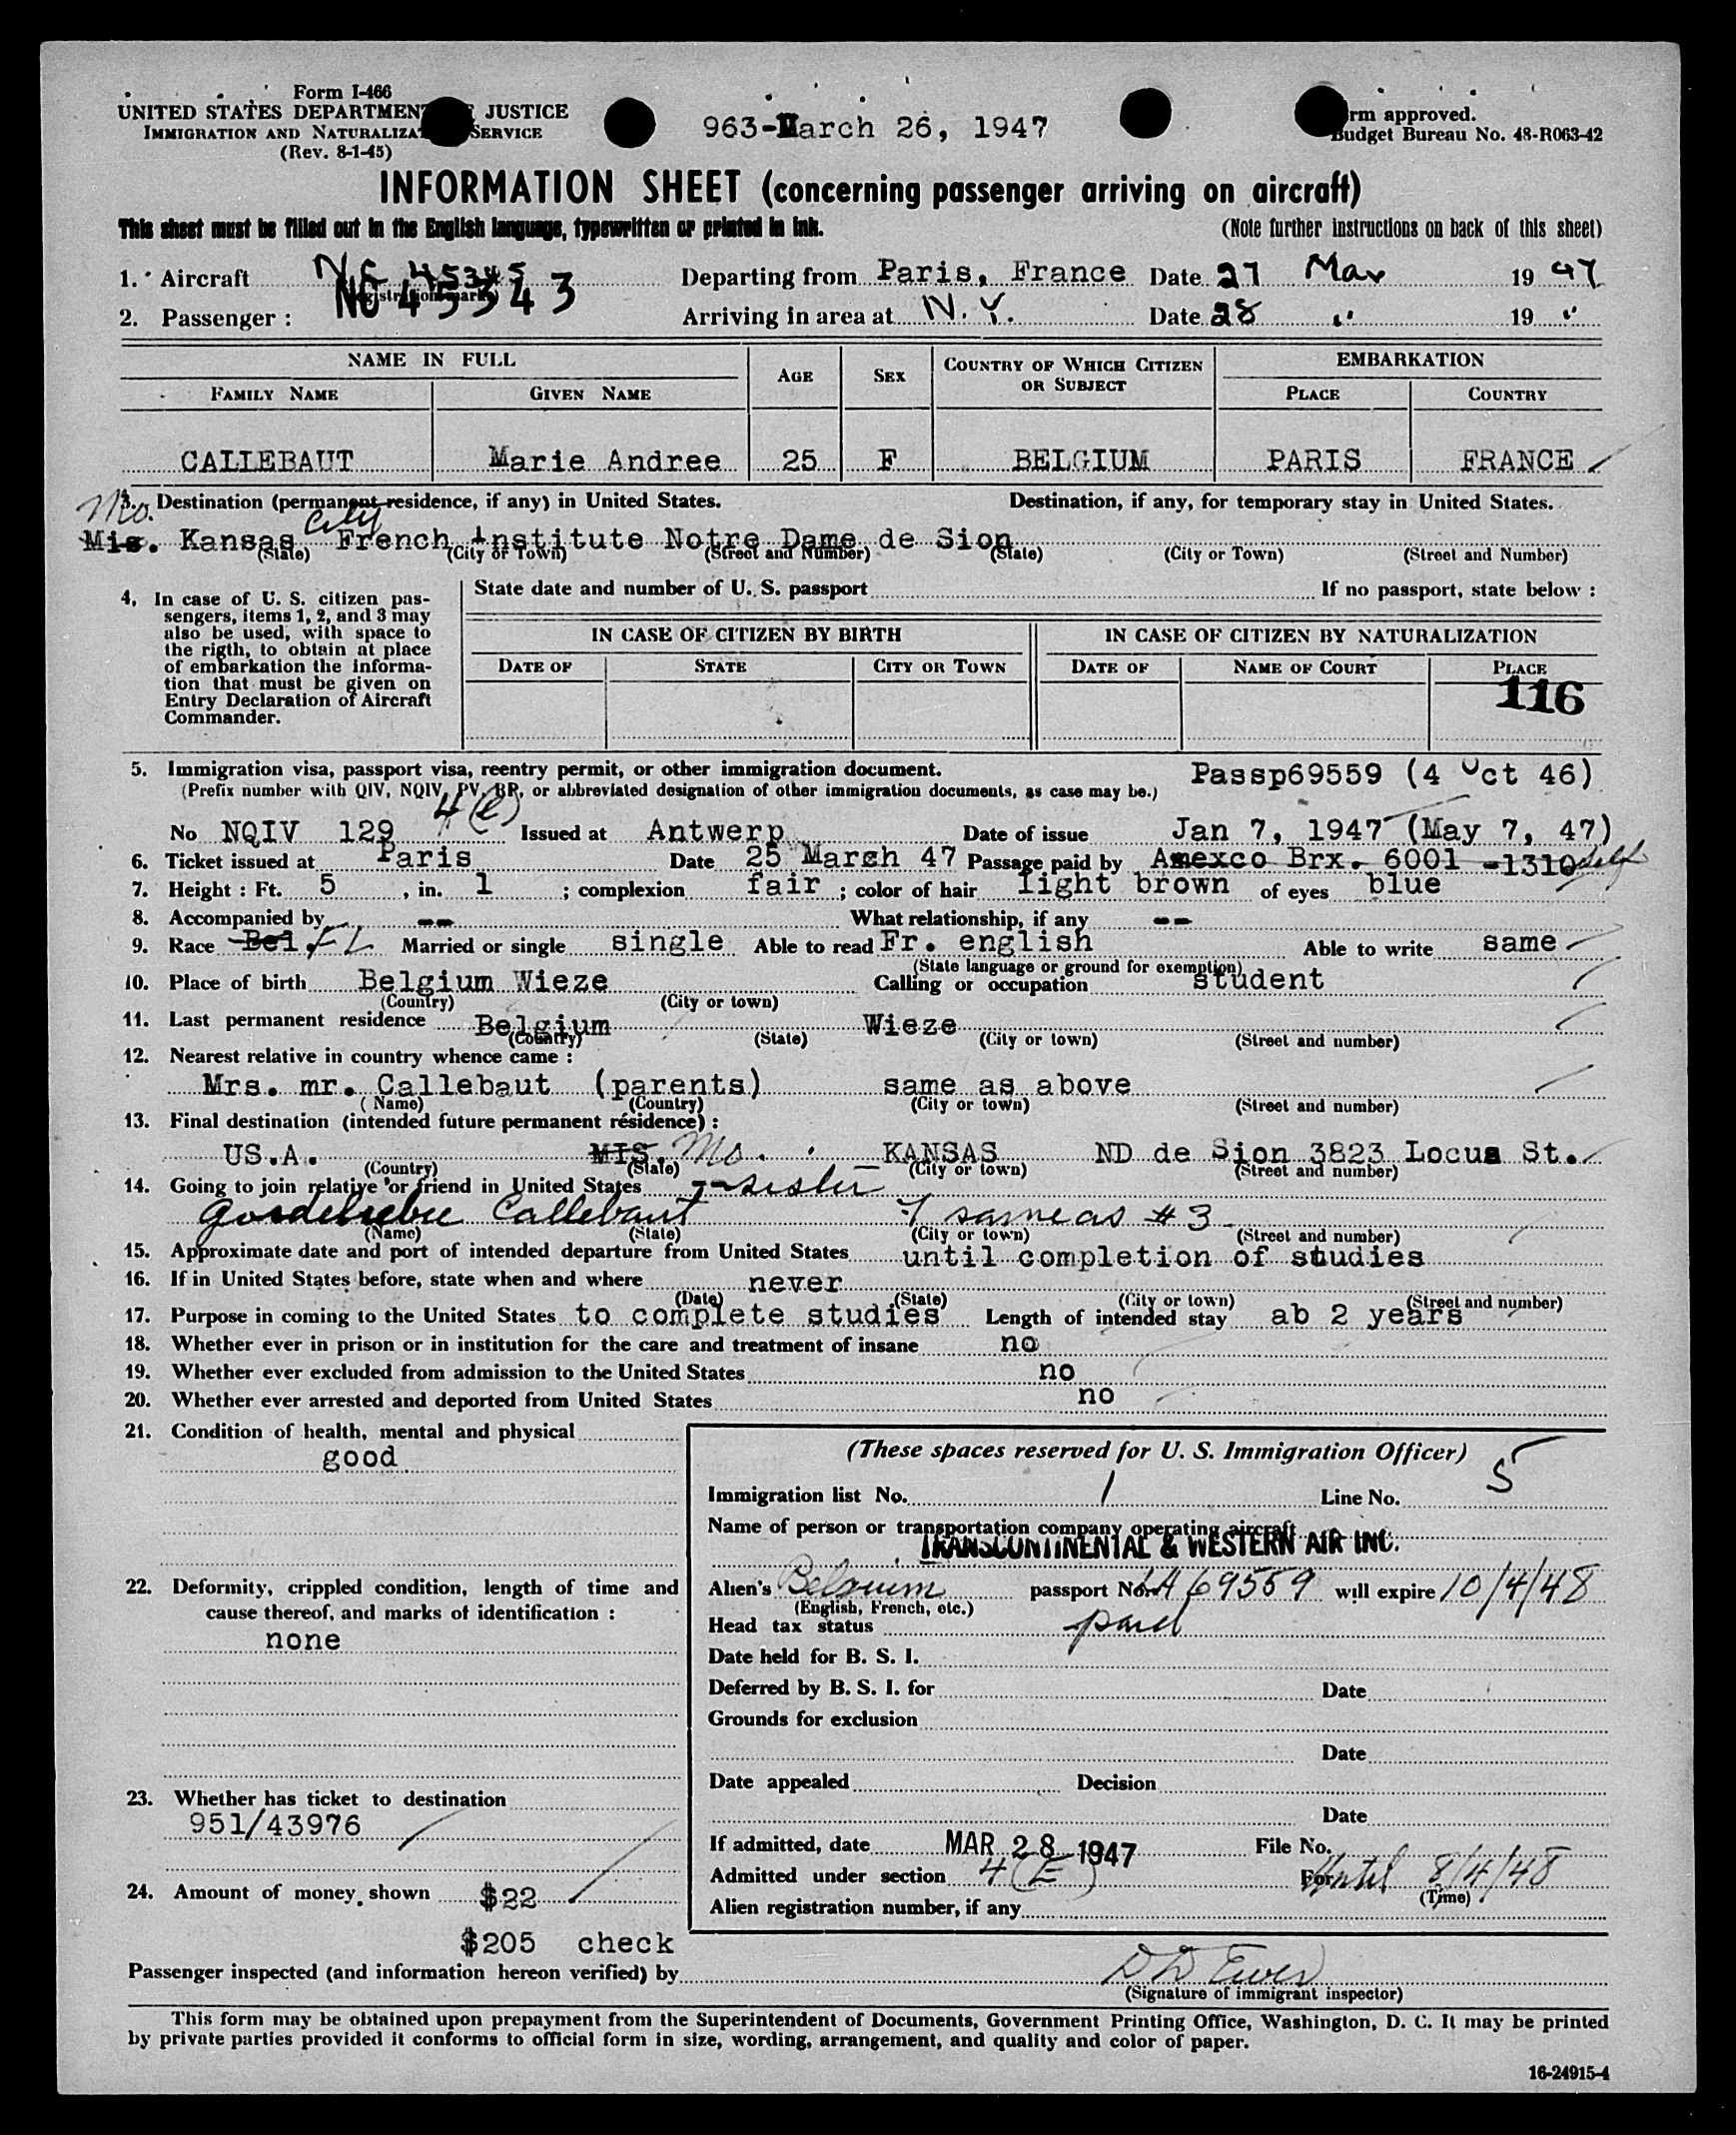 Form I-466
UNITED STATES DEPARTMENT JUSTICE
IMMIGRATION AND NATURALIZA SERVICE
(Rev. 8-1-45)
963-March 26, 1947
rm approved.
Budget Bureau No. 48-R063-42
INFORMATION SHEET (concerning passenger arriving on aircraft)
This sheet must be filled out in the English language, typewritten or printed in ink.
(Note further instructions on back of this sheet)
1. Aircraft NC 45345 Departing from Paris, France Date 27 Mar 19 47
NC 45343
2. Passenger : Arriving in area at N.Y. Date 28 " 19 "
NAME IN FULL
AGE
SEX
COUNTRY OF WHICH CITIZEN OR SUBJECT
EMBARKATION
FAMILY NAME
GIVEN NAME
PLACE
COUNTRY
CALLEBAUT Marie Andree 25 F BELGIUM PARIS FRANCE
3. Destination (permanent residence, if any) in United States. Destination, if any, for temporary stay in United States.
Mo. City
Mis. Kansas French institute Notre Dame de Sion
(State) (City or Town) (Street and Number) (State) (City or Town) (Street and Number)
4. In case of U. S. citizen pas-
sengers, items 1, 2, and 3 may
also be used, with space to
the rigth, to obtain at place
of embarkation the informa-
tion that must be given on
Entry Declaration of Aircraft
Commander.
State date and number of U. S. passport If no passport, state below :
IN CASE OF CITIZEN BY BIRTH
IN CASE OF CITIZEN BY NATURALIZATION
DATE OF STATE CITY OR TOWN DATE OF NAME OF COURT PLACE
116
5. Immigration visa, passport visa, reentry permit, or other immigration document. Passp69559 (4 Oct 46)
(Prefix number with QIV, NQIV, PV, RP, or abbreviated designation of other immigration documents, as case may be.)
4(e)
No NQIV 129 Issued at Antwerp Date of issue Jan 7, 1947 (May 7, 47)
6. Ticket issued at Paris Date 25 March 47 Passage paid by Amexco Brx. 6001 -1310 self
7. Height : Ft. 5 , in. 1 ; complexion fair ; color of hair light brown of eyes blue
8. Accompanied by -- What relationship, if any --
9. Race Bel. FL Married or single single Able to read Fr. english Able to write same
(State language or ground for exemption)
10. Place of birth Belgium Wieze Calling or occupation student
(Country) (City or town)
11. Last permanent residence Belgium Wieze
(Country) (State) (City or town) (Street and number)
12. Nearest relative in country whence came :
Mrs. mr. Callebaut (parents) same as above
(Name) (Country) (City or town) (Street and number)
13. Final destination (intended future permanent résidence) :
US.A. MIS. Mo. KANSAS ND de Sion 3823 Locus St.
(Country) (State) (City or town) (Street and number)
14. Going to join relative or friend in United States sister
Callebaut same as #3
(Name) (State) (City or town) (Street and number)
15. Approximate date and port of intended departure from United States until completion of studies
16. If in United States before, state when and where never
(Date) (State) (City or town) (Street and number)
17. Purpose in coming to the United States to complete studies Length of intended stay ab 2 years
18. Whether ever in prison or in institution for the care and treatment of insane no
19. Whether ever excluded from admission to the United States no
20. Whether ever arrested and deported from United States no
21. Condition of health, mental and physical
good
22. Deformity, crippled condition, length of time and
cause thereof, and marks of identification :
none
23. Whether has ticket to destination
951/43976
24. Amount of money shown $22
$205 check
(These spaces reserved for U. S. Immigration Officer)
Immigration list No. 1 Line No. 5
Name of person or transportation company operating aircraft
TRANSCONTINENTAL & WESTERN AIR INC.
Alien's Belguim passport No. A69559 will expire 10/4/48
(English, French, etc.)
Head tax status paid
Date held for B. S. I.
Deferred by B. S. I. for Date
Grounds for exclusion
Date
Date appealed Decision
Date
If admitted, date MAR 28 1947 File No.
Admitted under section 4(E) For Until 8/4/48
(Time)
Alien registration number, if any
Passenger inspected (and information hereon verified) by
(Signature of immigrant inspector)
This form may be obtained upon prepayment from the Superintendent of Documents, Government Printing Office, Washington, D. C. It may be printed
by private parties provided it conforms to official form in size, wording, arrangement, and quality and color of paper.
16-24915-4